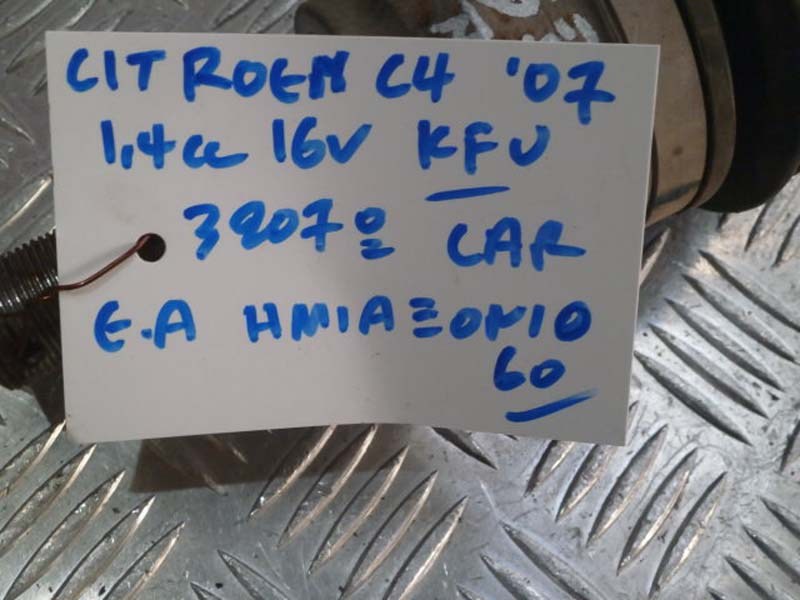 CITROEN C4 '07
1,4cc 16v KFU
3207º CAR
E.A ΗΜΙΑΞΟΝΙΟ
60